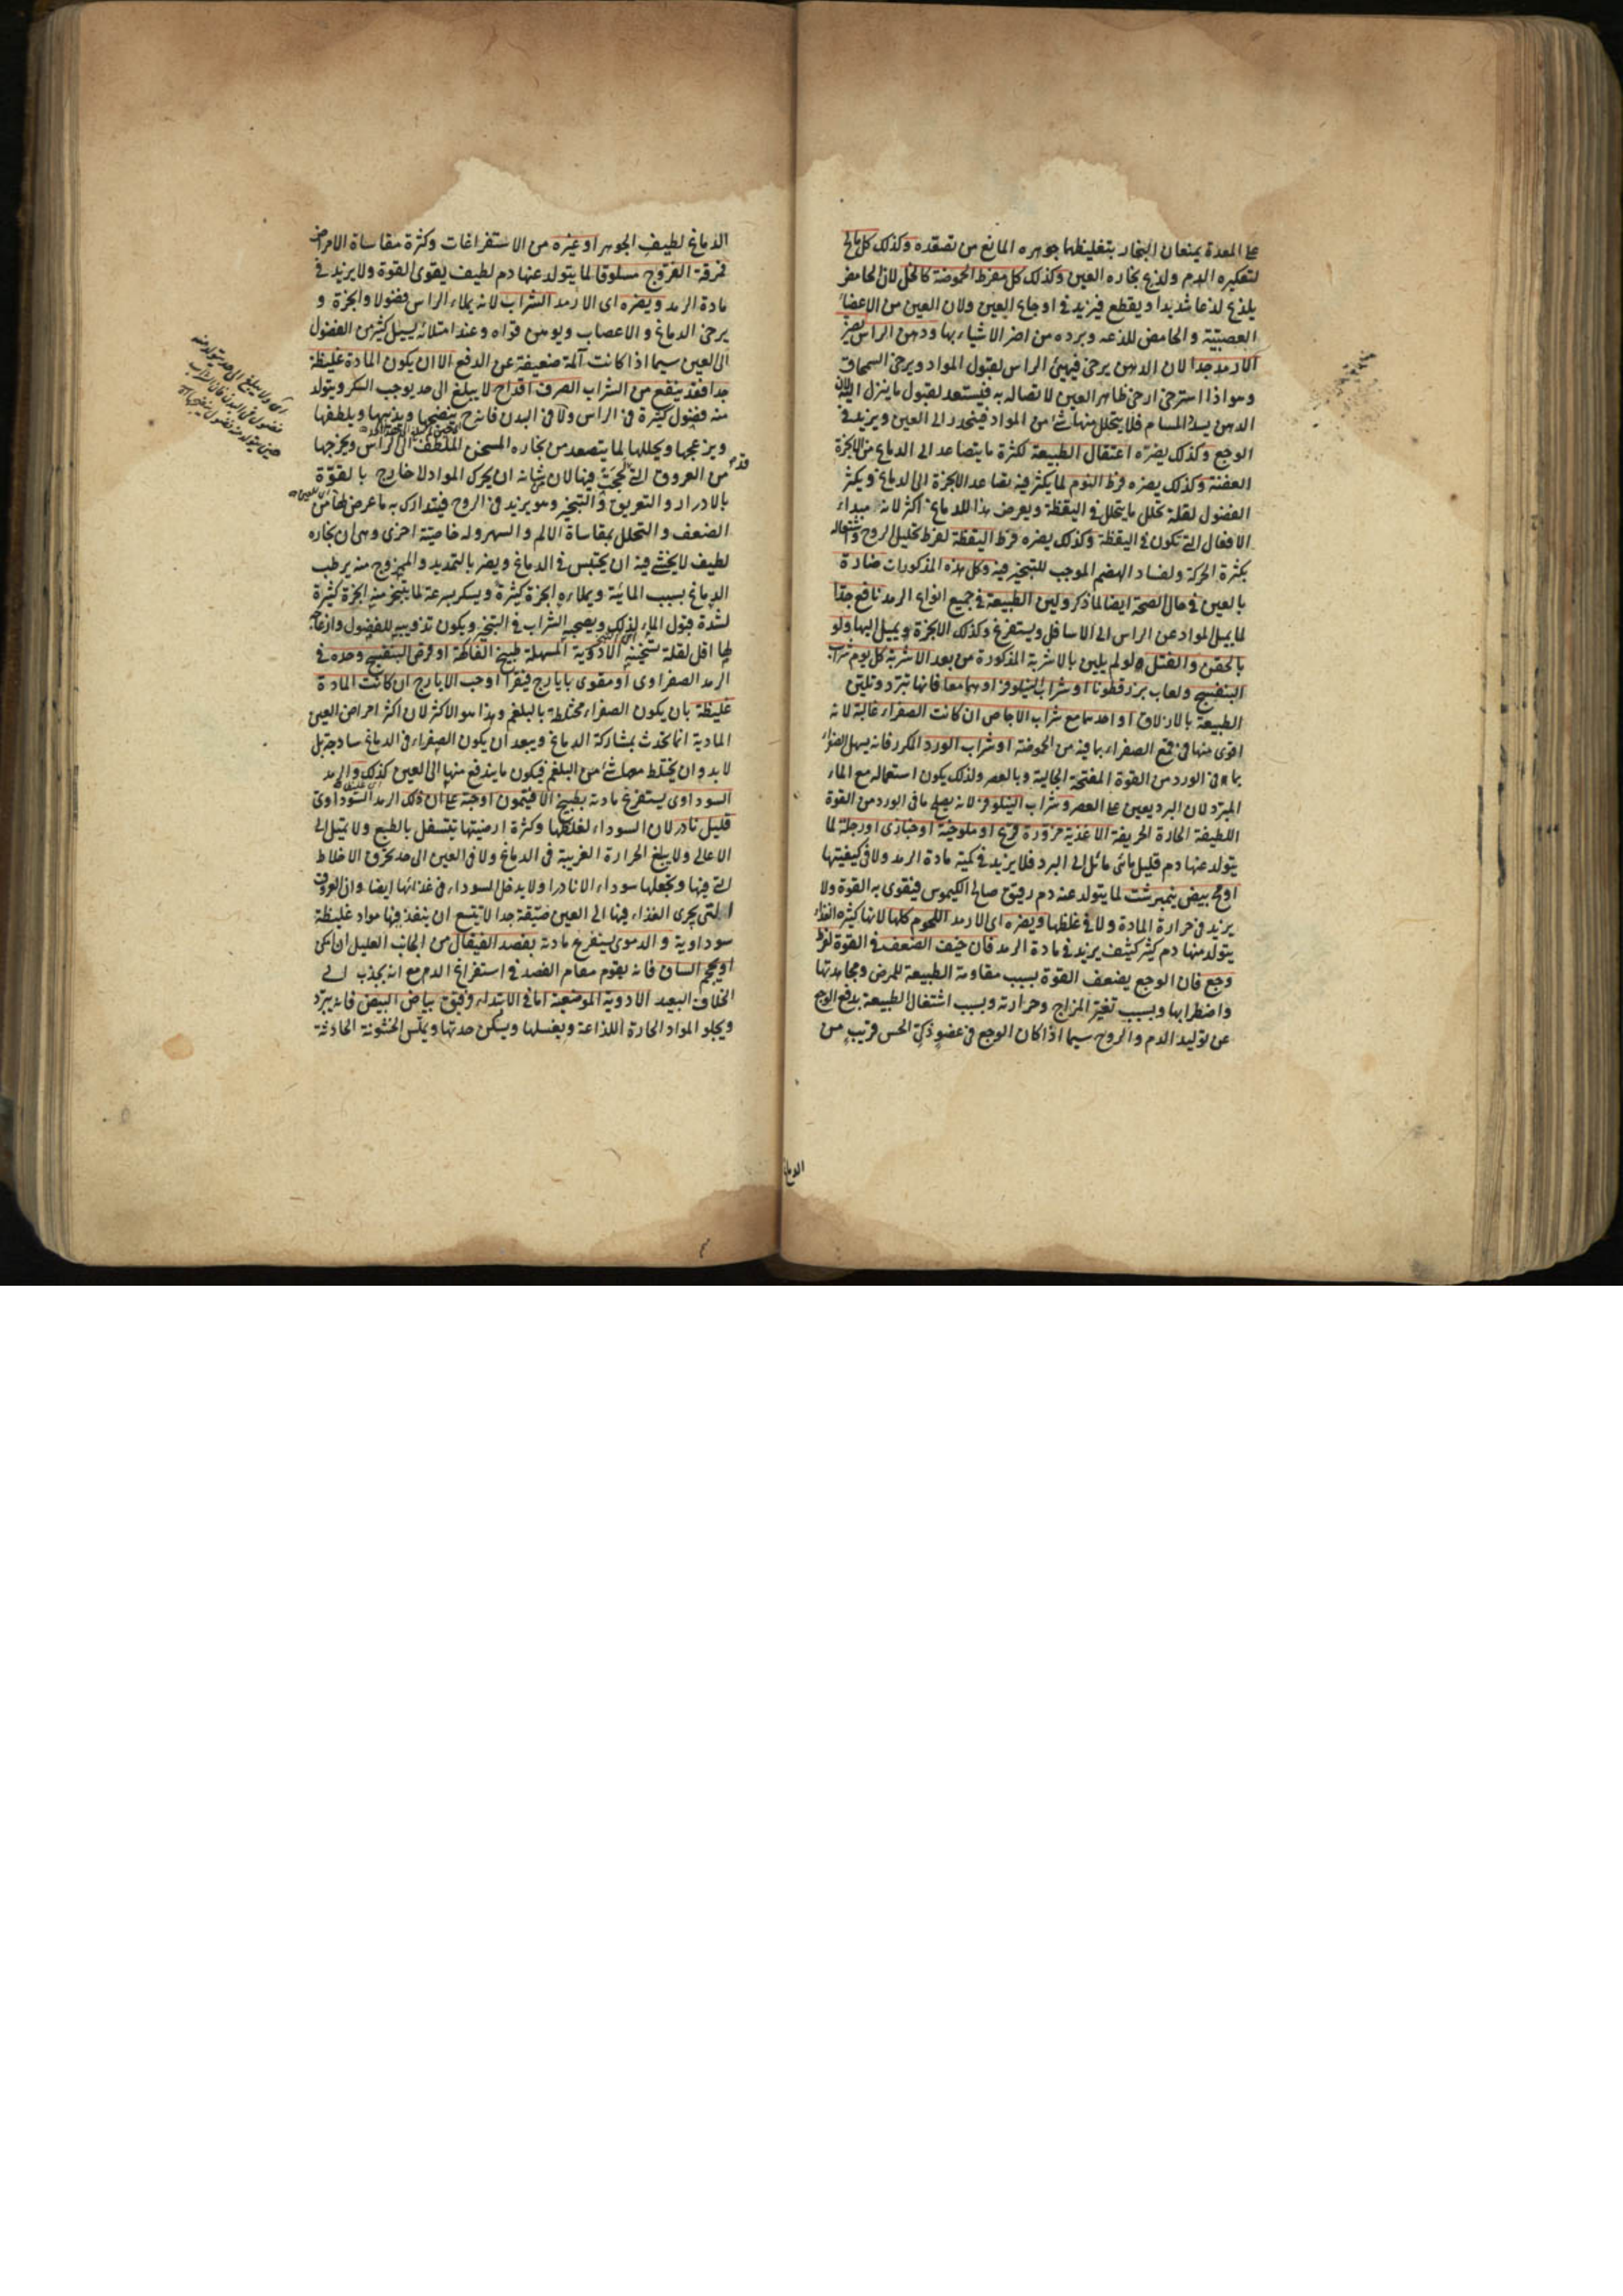 على المعدة يمنعان البخار بتغليظهما جوهره المانع من تصعده وكذلك كل مالح
لتعكيره الدم ولذع بخاره العين وكذلك كل مفرط الحموضة كالخل لان الحامض
يلذع لذعا شديدا ويقطع فيزيد في اوجاع العين ولان العين من الاعضاء
العصبية والحامض للذعه وبرده من اضر الاشياء بها ودهن الراس يضر
الارمد جدا لان الدهن يرخى فيهيئ الراس لقبول المواد ويرخى السمحاق
وهو اذا استرخى ارخى ظاهر العين لاتصاله به فيستعد لقبول ما ينزل اليه ولان
الدهن يسد المسام فلا يتحلل منها شئ من المواد فينحدر الى العين ويزيد في
الوجع وكذلك يضره اعتقال الطبيعة لكثرة ما يتصاعد الى الدماغ من الابخرة
العفنة وكذلك يضره فرط النوم لما يكثر فيه تصاعد الابخرة الى الدماغ ويكثر
الفضول لقلة تحلل ما يتحلل في اليقظة ويعرض هذا للدماغ اكثر لانه مبداء
الافعال التى تكون في اليقظة وكذلك يضره فرط اليقظة لفرط تحليل الروح واشتعاله
بكثرة الحركة ولفساد الهضم الموجب للتبخير فيه وكل هذه المذكورات ضارة
بالعين في حال الصحة ايضا لما ذكر ولين الطبيعة في جميع انواع الرمد نافع جدا
لما يميل المواد عن الراس الى الاسافل ويستفرغ وكذلك الابخرة ويميل اليها ولو
بالحقن والفتل ولو لم يلين بالاشربة المذكورة من بعد الاشربة كل يوم شراب
البنفسج ولعاب بزر قطونا او شراب النيلوفر او هما معا فانها تبرد وتلين
الطبيعة بالازلاق او احدهما مع شراب الاجاص ان كانت الصفراء غالبة لانه
اقوى منها في قمع الصفراء بما فيه من الحموضة او شراب الورد المكرر فانه يسهل الصفراء
بما في الورد من القوة المفتحة الجالية وبالعصر ولذلك يكون استعماله مع الماء
المبرد لان البرد يعين على العصر وشراب النيلوفر لانه يصلح ما في الورد من القوة
اللطيفة الحادة الحريفة الاغذية مزورة قرع او ملوخية او خبازى او رجلة لما
يتولد عنها دم قليل مائى مائل الى البرد فلا يزيد في كمية مادة الرمد ولا في كيفيتها
او مح بيض نيمبرشت لما يتولد عنه دم رقيق صالح الكيموس فيقوى به القوة ولا
يزيد في حرارة المادة ولا في غلظها ويضره اى الارمد اللحوم كلها لانها كثيرة الغذاء
يتولد منها دم كثير كثيف يزيد في مادة الرمد فان خيف الضعف في القوة لفرط
وجع فان الوجع يضعف القوة بسبب مقاومة الطبيعة للمرض ومجاهدتها
واضطرابها وبسبب تغير المزاج وحرارته وبسبب اشتغال الطبيعة بدفع الوجع
عن توليد الدم والروح سيما اذا كان الوجع في عضو ذكى الحس قريب من
الدماغ
الدماغ لطيف الجوهر او غيره من الاستفراغات وكثرة مقاساة الامراض
فمرقة الفروج مسلوقا لما يتولد عنها دم لطيف يقوى القوة ولا يزيد في
مادة الرمد ويضره اى الارمد الشراب لانه يملاء الراس فضولا وابخرة و
يرخى الدماغ والاعصاب ويوهن قواه وعند امتلائه يسيل كثير من الفضول
الى العين سيما اذا كانت آلمة ضعيفة عن الدفع الا ان يكون المادة غليظة
جدا فقد ينفع من الشراب الصرف اقداح لا يبلغ الى حد يوجب السكر ويتولد
منه فضول كثيرة في الراس ولا في البدن فانه ح ينضجها ويذيبها ويلطفها
ويزعجها ويحللها لما يتصعد من بخاره المسخن الملطف الى الراس ويخرجها
من العروق التى لحجت فيها لان شانه ان يحرك المواد لا خارج بالقوة
بالادرار والتعريق والتبخير وهو يزيد في الروح فيتدارك به ما عرض لها من
الضعف والتحلل بمقاساة الالم والسهر وله خاصية اخرى وهى ان بخاره
لطيف لا يخشى فيه ان يحتبس في الدماغ ويضر بالتمديد والممزوج منه يرطب
الدماغ بسبب المائية ويملاءه ابخرة كثيرة ويسكر بسرعة لما يتبخر منه ابخرة كثيرة
لشدة قبول الماء لذلك ويصحبه الشراب في التبخير ويكون تذويبه للفضول وازعاجه
لها اقل لقلة تسخينه الادوية المسهلة طبيخ الفاكهة او قرص البنفسج وحده في
الرمد الصفراوى او مقوى بايارج فيقرا او حب الايارج ان كانت المادة
غليظة بان يكون الصفراء مختلطة بالبلغم وهذا هو الاكثر لان اكثر امراض العين
المادية انما تحدث بمشاركة الدماغ ويبعد ان يكون الصفراء في الدماغ ساذجة بل
لابد وان يختلط معها شئ من البلغم فيكون ما يندفع منها الى العين كذلك والرمد
السوداوى يستفرغ مادته بطبيخ الافتيمون او حبه على ان ذلك الرمد السوداوى
قليل نادر لان السوداء لغلظها وكثرة ارضيتها يتسفل بالطبع ولا تميل الى
الاعالى ولا يبلغ الحرارة الغريبة في الدماغ ولا في العين الى حد يحرق الاخلاط
التى فيها ويجعلها سوداء الا نادرا ولا يدخل السوداء في غذائها ايضا وان العروق
التى يجرى الغذاء فيها الى العين ضيقة جدا لا تتسع ان ينفذ فيها مواد غليظة
سوداوية والدموى يستفرغ مادته بفصد القيفال من الجانب العليل ان امكن
او يحجم الساق فانه يقوم مقام الفصد في استفراغ الدم مع انه يجذب الى
الخلاف البعيد الادوية الموضعية اما في الابتداء فرقيق بياض البيض فانه يبرد
ويجلو المواد الحارة اللذاعة ويغسلها ويسكن حدتها ويملس الخشونة الحادثة